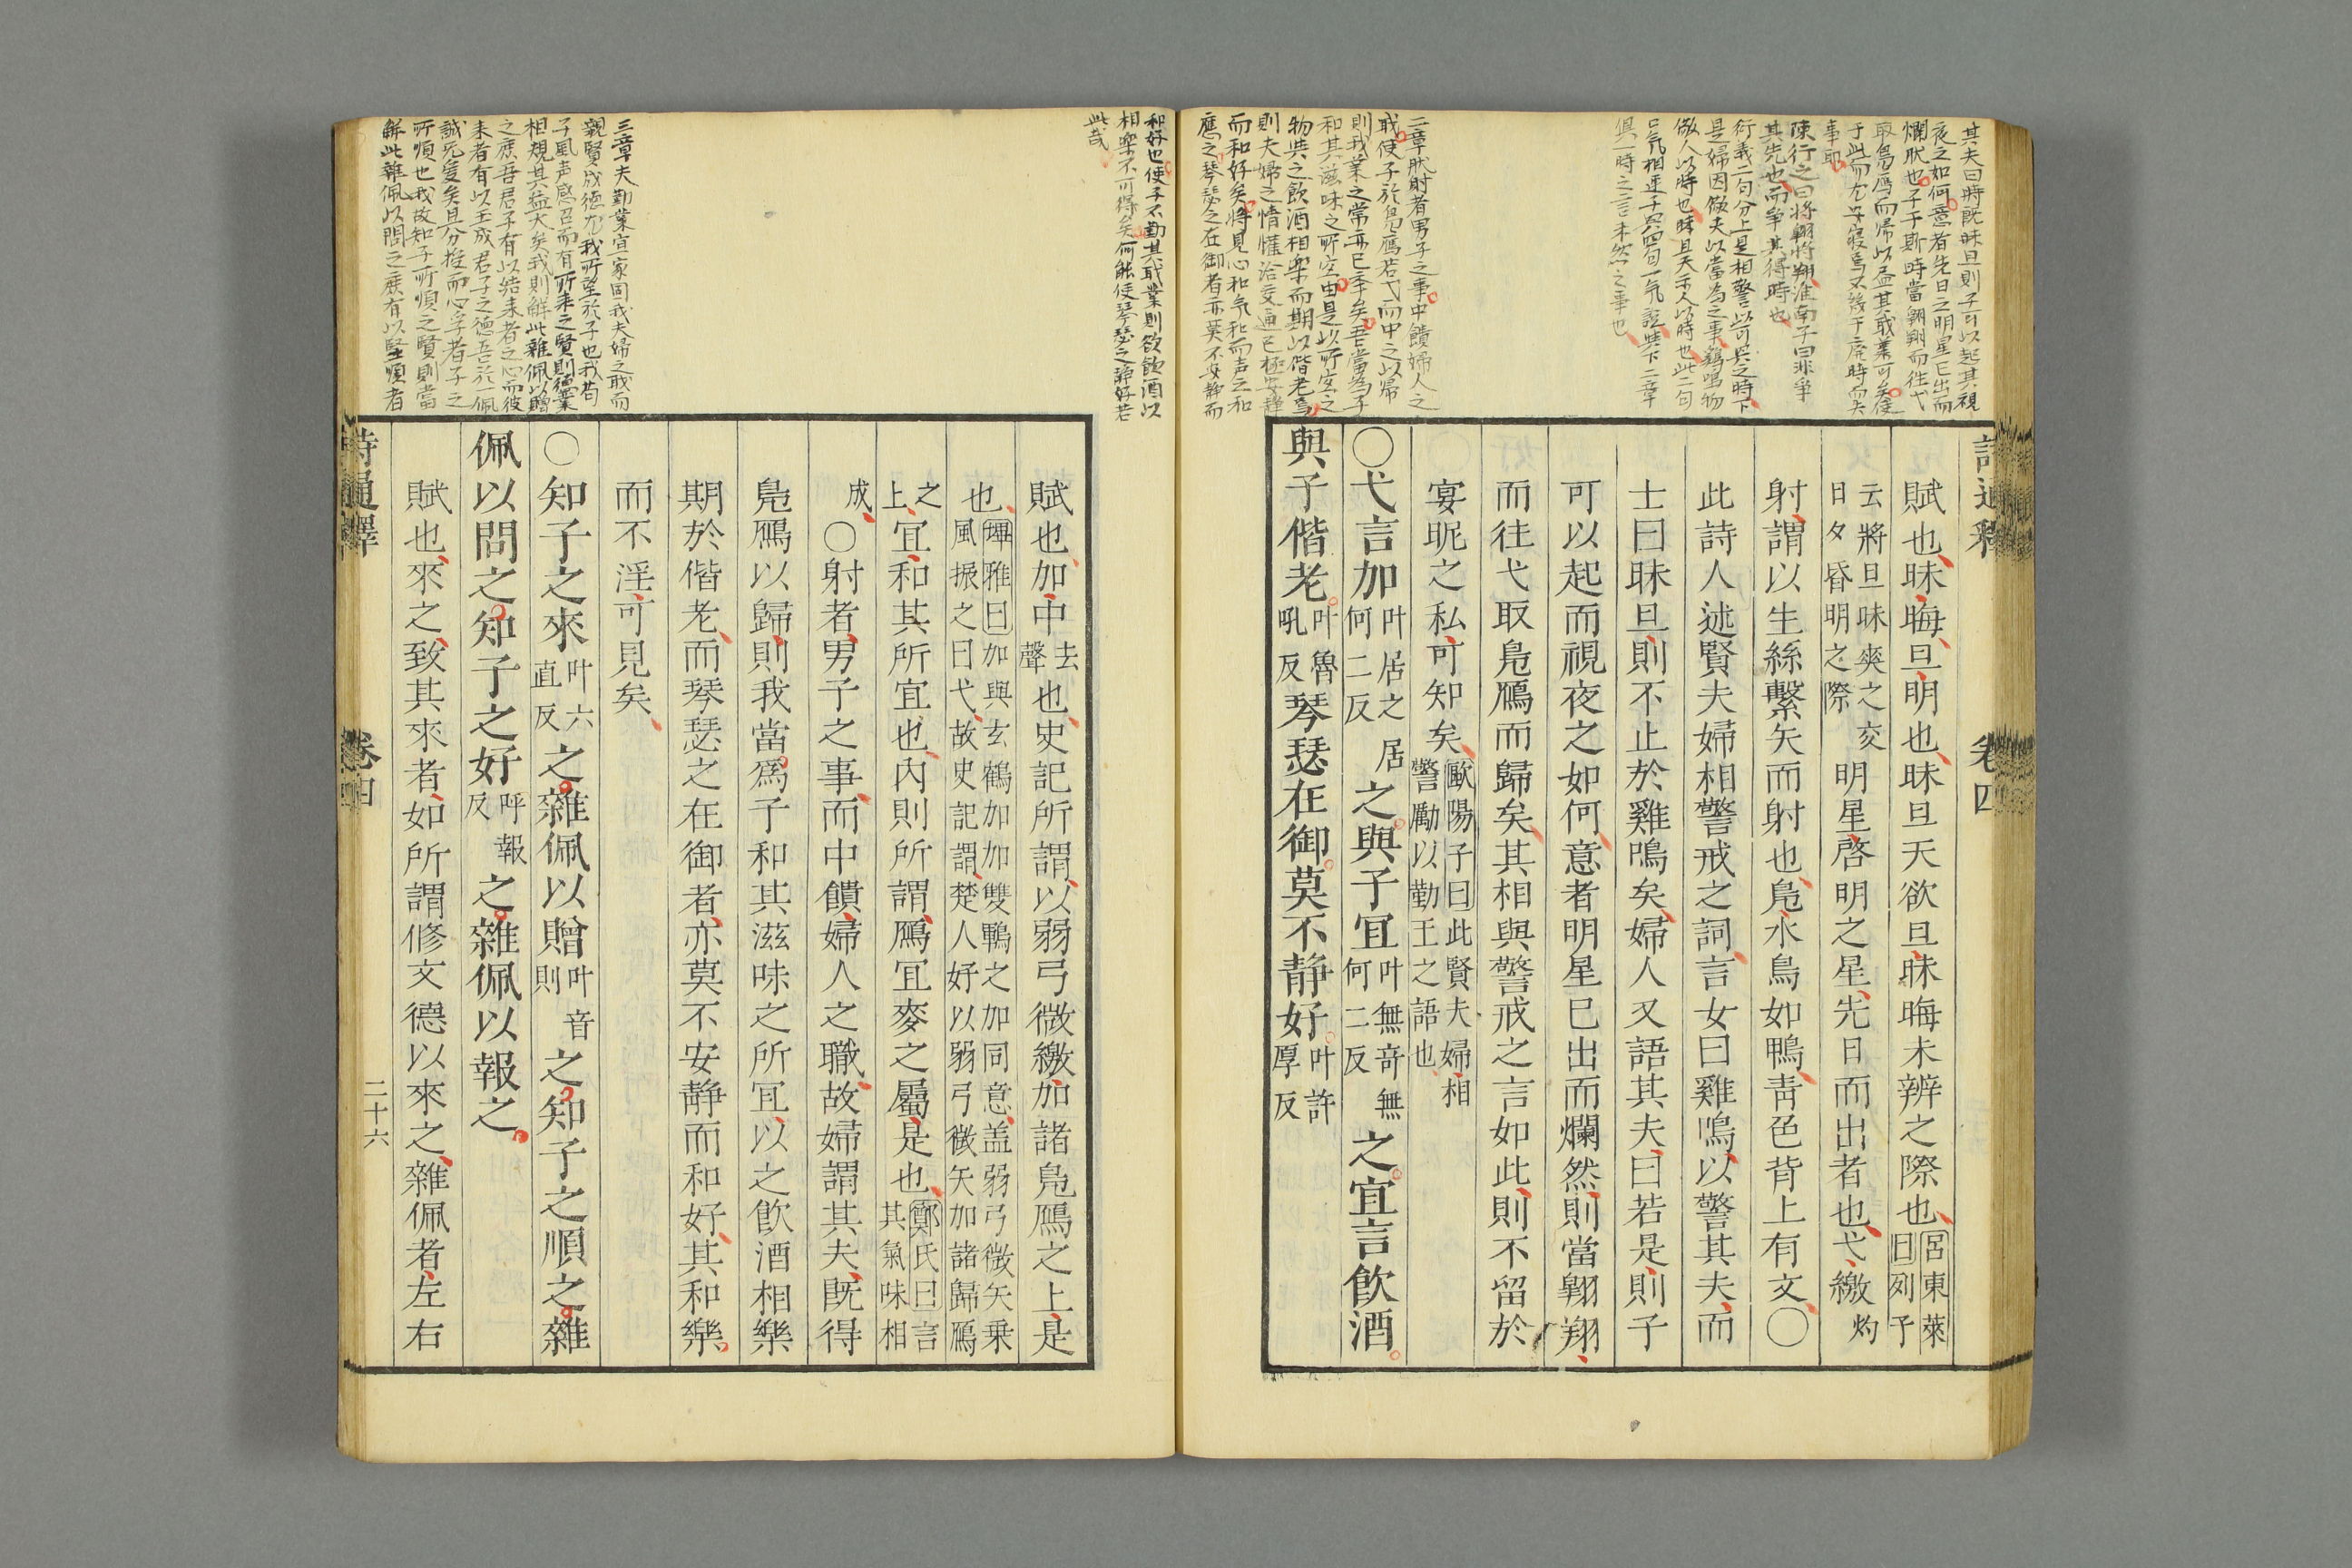 其夫曰時既昧旦則子可以起其視
夜之如何意者先日之明星已出而
爛然也子于斯時當翱翔而往弋
取鳧鴈而歸以盡其職業可矣使
事耶
陳行之曰將翱將翔淮南子曰非爭
其先也而爭其得時也
俱一時之言未然之事也
詩通釋
卷四
賦也昧晦旦明也昧旦天欲旦昧晦未辨之際也呂東萊
曰列子
云將旦昧爽之交
日夕昏明之際
明星啓明之星先日而出者也弋繳灼
射謂以生絲繫矢而射也鳧水鳥如鴨青色背上有文○
此詩人述賢夫婦相警戒之詞言女曰雞鳴以警其夫而
士曰昧旦則不止於雞鳴矣婦人又語其夫曰若是則子
可以起而視夜之如何意者明星已出而爛然則當翱翔
而往弋取鳧鴈而歸矣其相與警戒之言如此則不留於
宴昵之私可知矣歐陽子曰此賢夫婦相
警勵以勤王之語也
○弋言加叶居之居
何二反
之與子宜叶無奇無
何二反
之宜言飲酒
與子偕老叶魯
吼反
琴瑟在御莫不静好叶許
厚反
二章狀射者男子之事中饋婦人之
職使子於鳧鴈若弋而中之以歸
則我業之常亦已乎矣吾當爲子
和其滋味之所宜由是以所宜之
物共之飲酒相樂而期以偕老焉
則夫婦之情懽洽交通已極安靜
而和好矣將見心和氣和而声之和
應之琴瑟之在御者亦莫不安靜而
和好也使子不勤其職業則欲飲酒以
相樂不可得矣何能使琴瑟之靜好若
此哉
賦也加中去
聲
也史記所謂以弱弓微繳加諸鳧鴈之上是
也埤雅曰加與玄鶴加加雙鴨之加同意盖弱弓微矢乗
風振之曰弋故史記謂楚人好以弱弓微矢加諸歸鴈
之
上
宜和其所宜也內則所謂鴈宜麥之屬是也鄭氏曰言
其氣味相
成○射者男子之事而中饋婦人之職故婦謂其夫既得
鳧鴈以歸則我當爲子和其滋味之所宜以之飲酒相樂
期於偕老而琴瑟之在御者亦莫不安静而和好其和樂
而不淫可見矣
三章夫勤業宜家固我夫婦之職而
親賢成德尤我所望於子也我苟
子風声感召而有所來之賢則德業
相規其益大矣我則解此雜佩以贈
之庶吾君子有以結来者之心而彼
来者有以玉成君子之德吾於一佩
誠无愛矣且分投而心孚者子之
所順也我故知子所順之賢則當
解此雜佩以問之庶有以堅順者
○知子之來叶六
直反
之雜佩以贈叶音
則
之知子之順之雜
佩以問之知子之好呼報
反
之雜佩以報之
賦也來之致其來者如所謂修文德以來之雜佩者左右
詩通釋
卷四
二十六